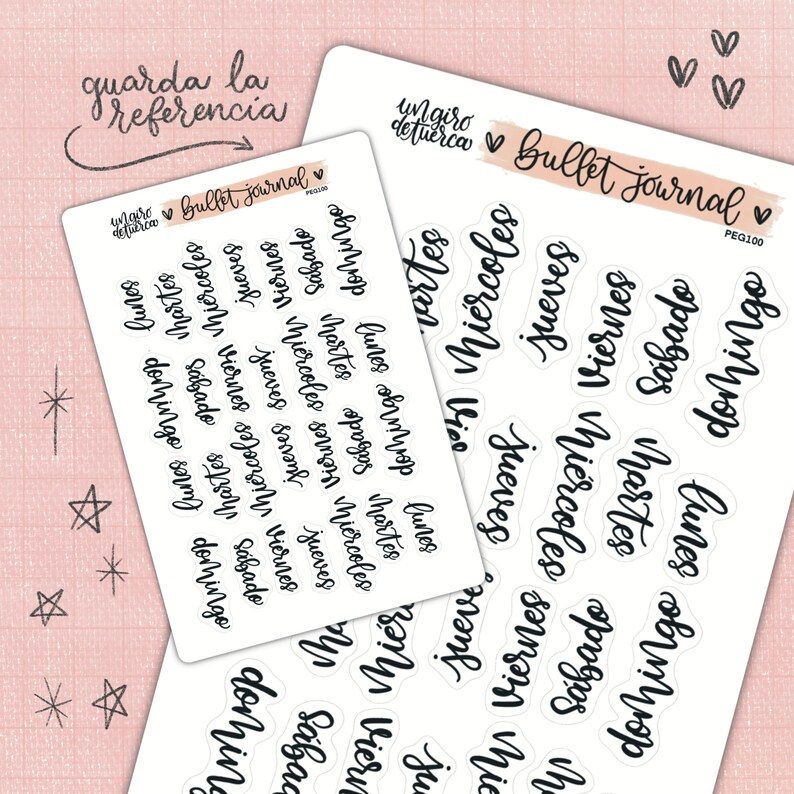 guarda la
referencia
un giro
de tuerca
bullet journal
PEG100
lunes martes miércoles jueves viernes sábado domingo
domingo sábado viernes jueves miércoles martes lunes
lunes martes miércoles jueves viernes sábado domingo
domingo sábado viernes jueves miércoles martes lunes
un giro
de tuerca
bullet journal
PEG100
artes miércoles jueves viernes sábado domingo
jueves miércoles martes lunes
jueves viernes sábado domingo